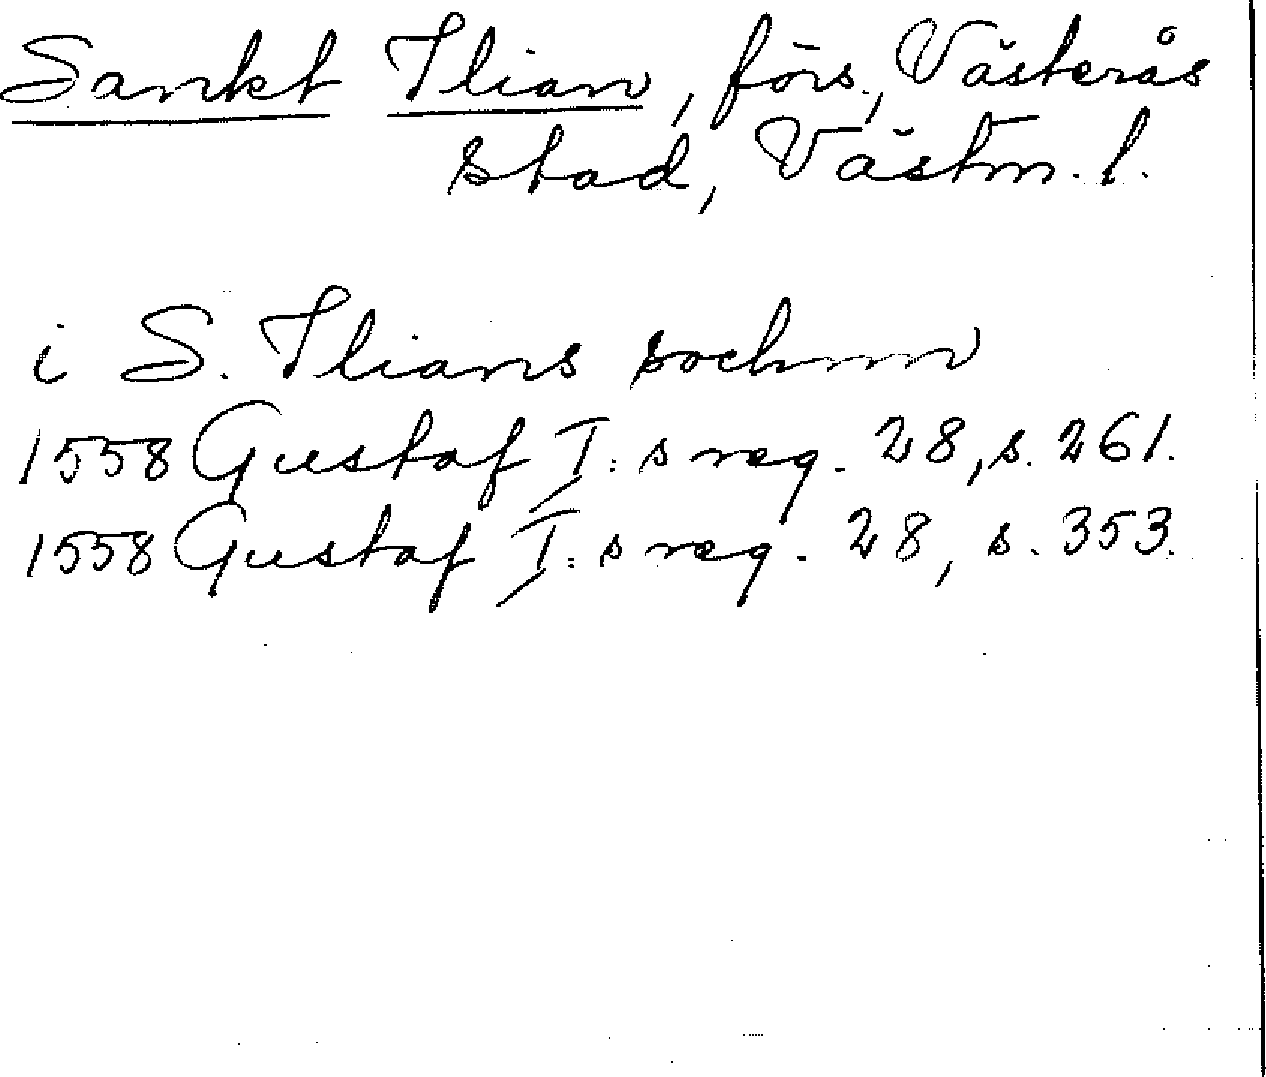 Sankt Ilian, förs., Västerås
stad, Västm. l.
i S. Ilians sochnn
1558 Gustaf I:s reg. 28, s. 261.
1558 Gustaf I:s reg. 28, s. 353.